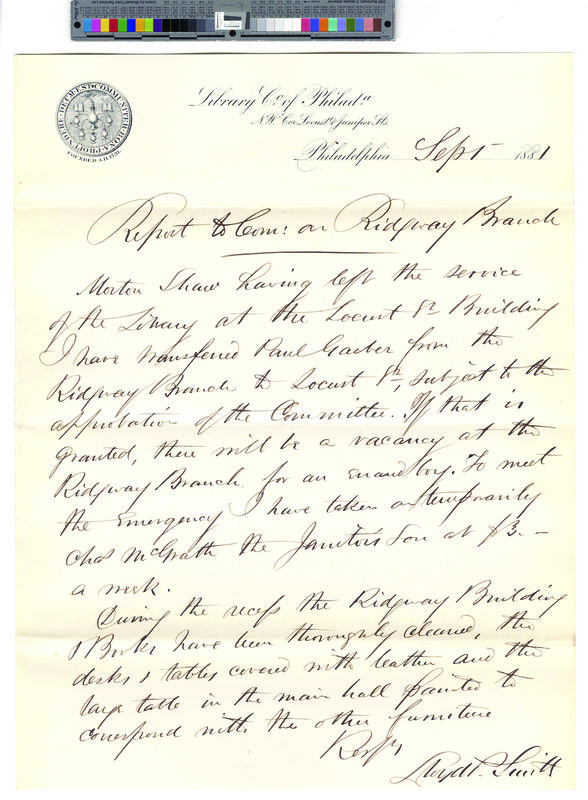 Library Co. of Philada.
N.W. Cor. Locust & Juniper Sts.
FOUNDED A.D. 1731.
Philadelphia Sept 1881
Report to Com: on Ridgway Branch
Morton Shaw having left the service
of the Library at the Locust St Building
I have transferred Paul Garber from the
Ridgway Branch to Locust St, subject to the
approbation of the Committee. If that is
granted, there will be a vacancy at the
Ridgway Branch for an errand boy. To meet
the emergency I have taken on temporarily
Chas McGrath the Janitor's Son at $3.—
a week.
During the recess the Ridgway Building
& Books have been thoroughly cleaned, the
desks & tables covered with leather and the
large table in the main hall painted to
correspond with the other furniture
Respy
Lloyd P. Smith